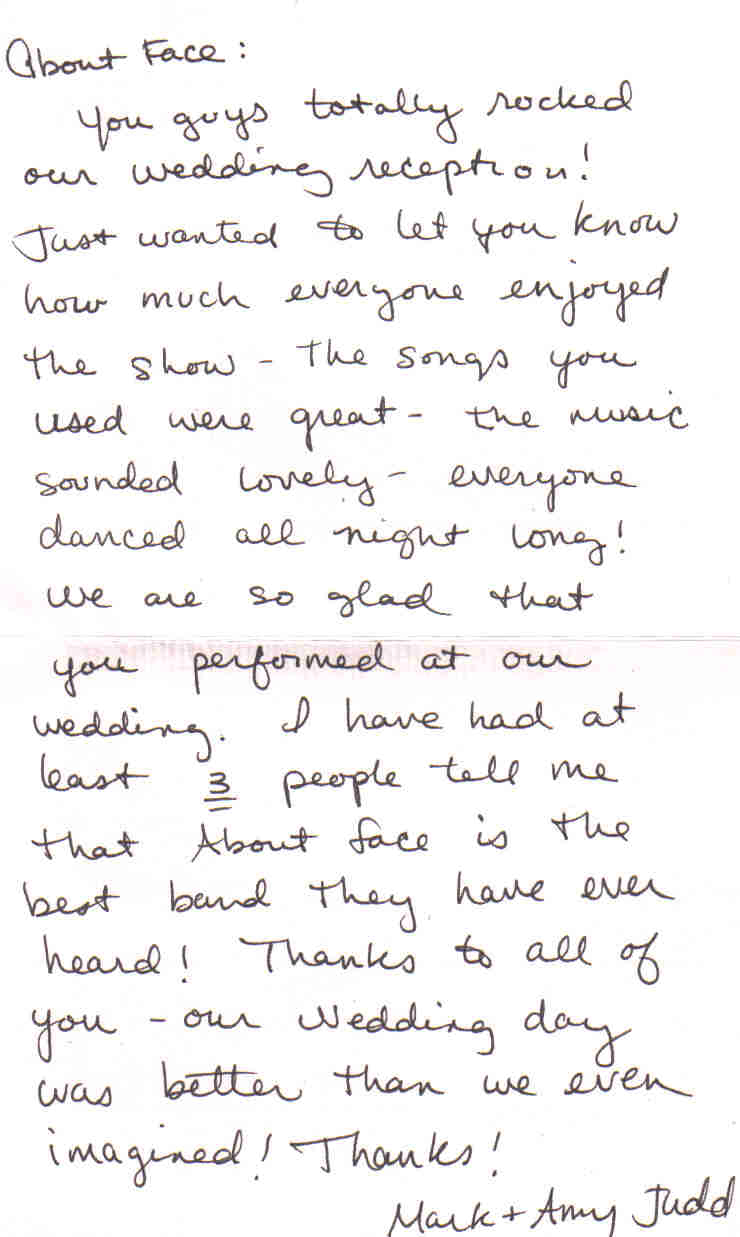 About Face:
You guys totally rocked
our wedding reception!
Just wanted to let you know
how much everyone enjoyed
the show - The songs you
used were great - the music
sounded lovely - everyone
danced all night long!
We are so glad that
you performed at our
wedding. I have had at
least 3 people tell me
that About face is the
best band they have ever
heard! Thanks to all of
you - our wedding day
was better than we even
imagined! Thanks!
Mark + Amy Judd